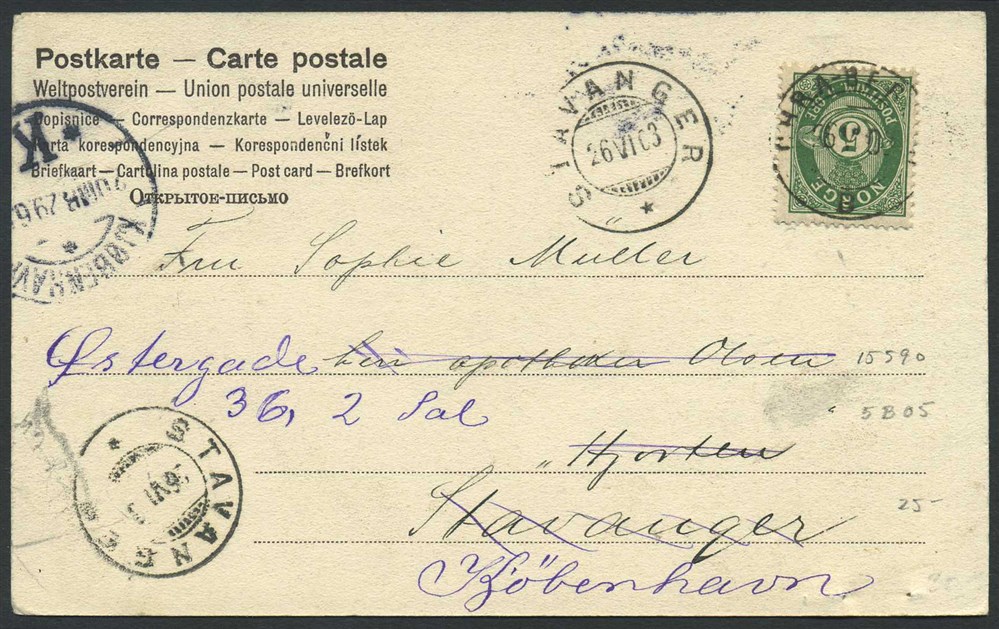 Postkarte — Carte postale
Weltpostverein — Union postale universelle
Dopisnice — Correspondenzkarte — Levelező-Lap
Karta korespondencyjna — Korespondenční lístek
Briefkaart — Cartolina postale — Post card — Brefkort
Открытое-письмо
STAVANGER
26 VI 03
POSTFRIM
5
NORGE
K
KJØBENHAVN
Fru Sophie Muller
Østergade hrr apotheker Olsen 15590
36, 2 Sal 5B05
"Hjorten"
STAVANGER
25-
Stavanger
Kjöbenhavn